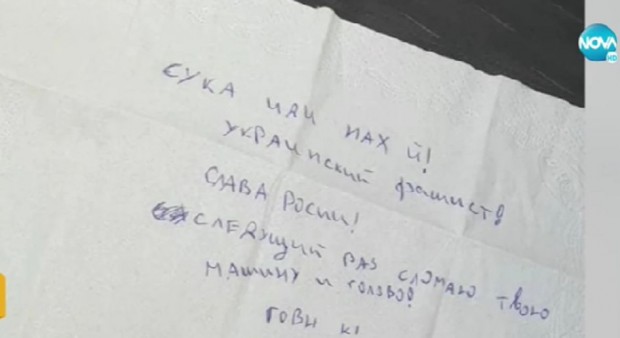 NOVA
HD
СУКА ИДИ НАХ Й!
УКРАИНСКИЙ фашист!
СЛАВА РОСИИ!
СЛЕДУЩИЙ РАЗ СЛОМАЮ ТВОЮ
МАШИНУ И ГОЛОВО!
ГОВН К!